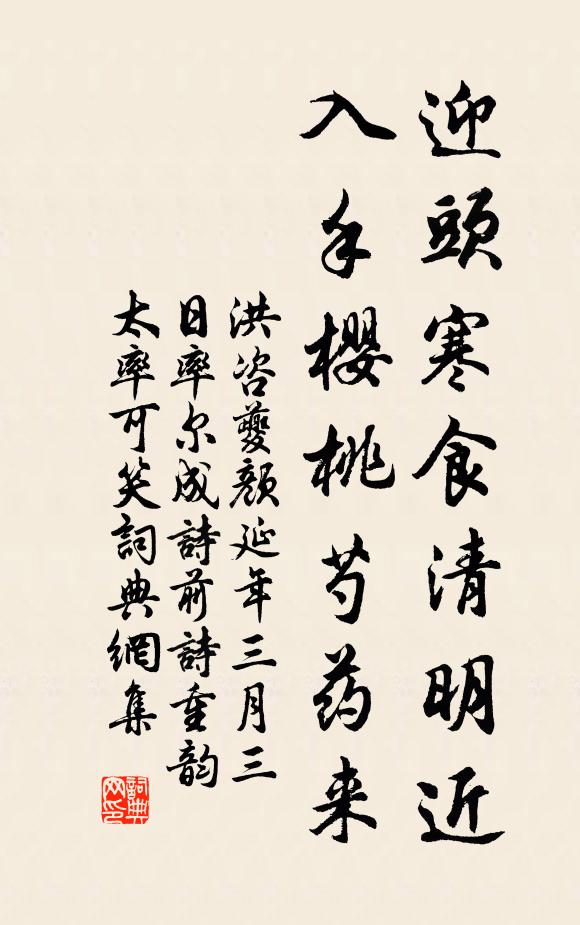 迎頭寒食清明近
入手櫻桃芍药来
洪咨夔顏延年三月三
日率尔成詩前詩重韵
太率可笑詞典網集
詞典网印